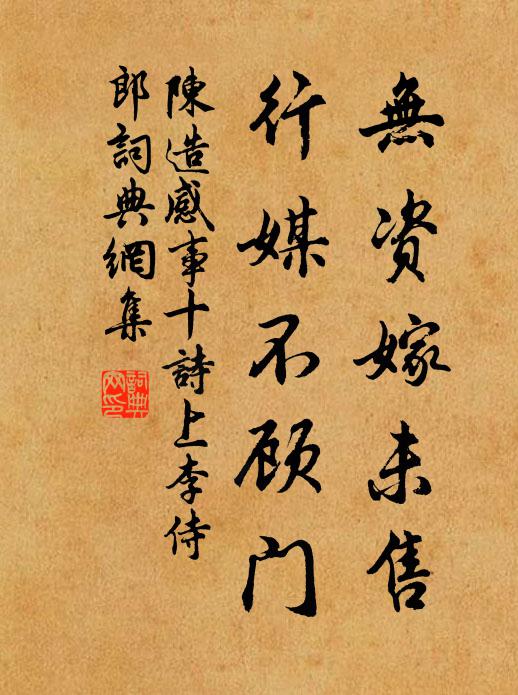 無资嫁未售
行媒不顾门
陳造感事十詩上李侍
郎詞典網集
詞典网印